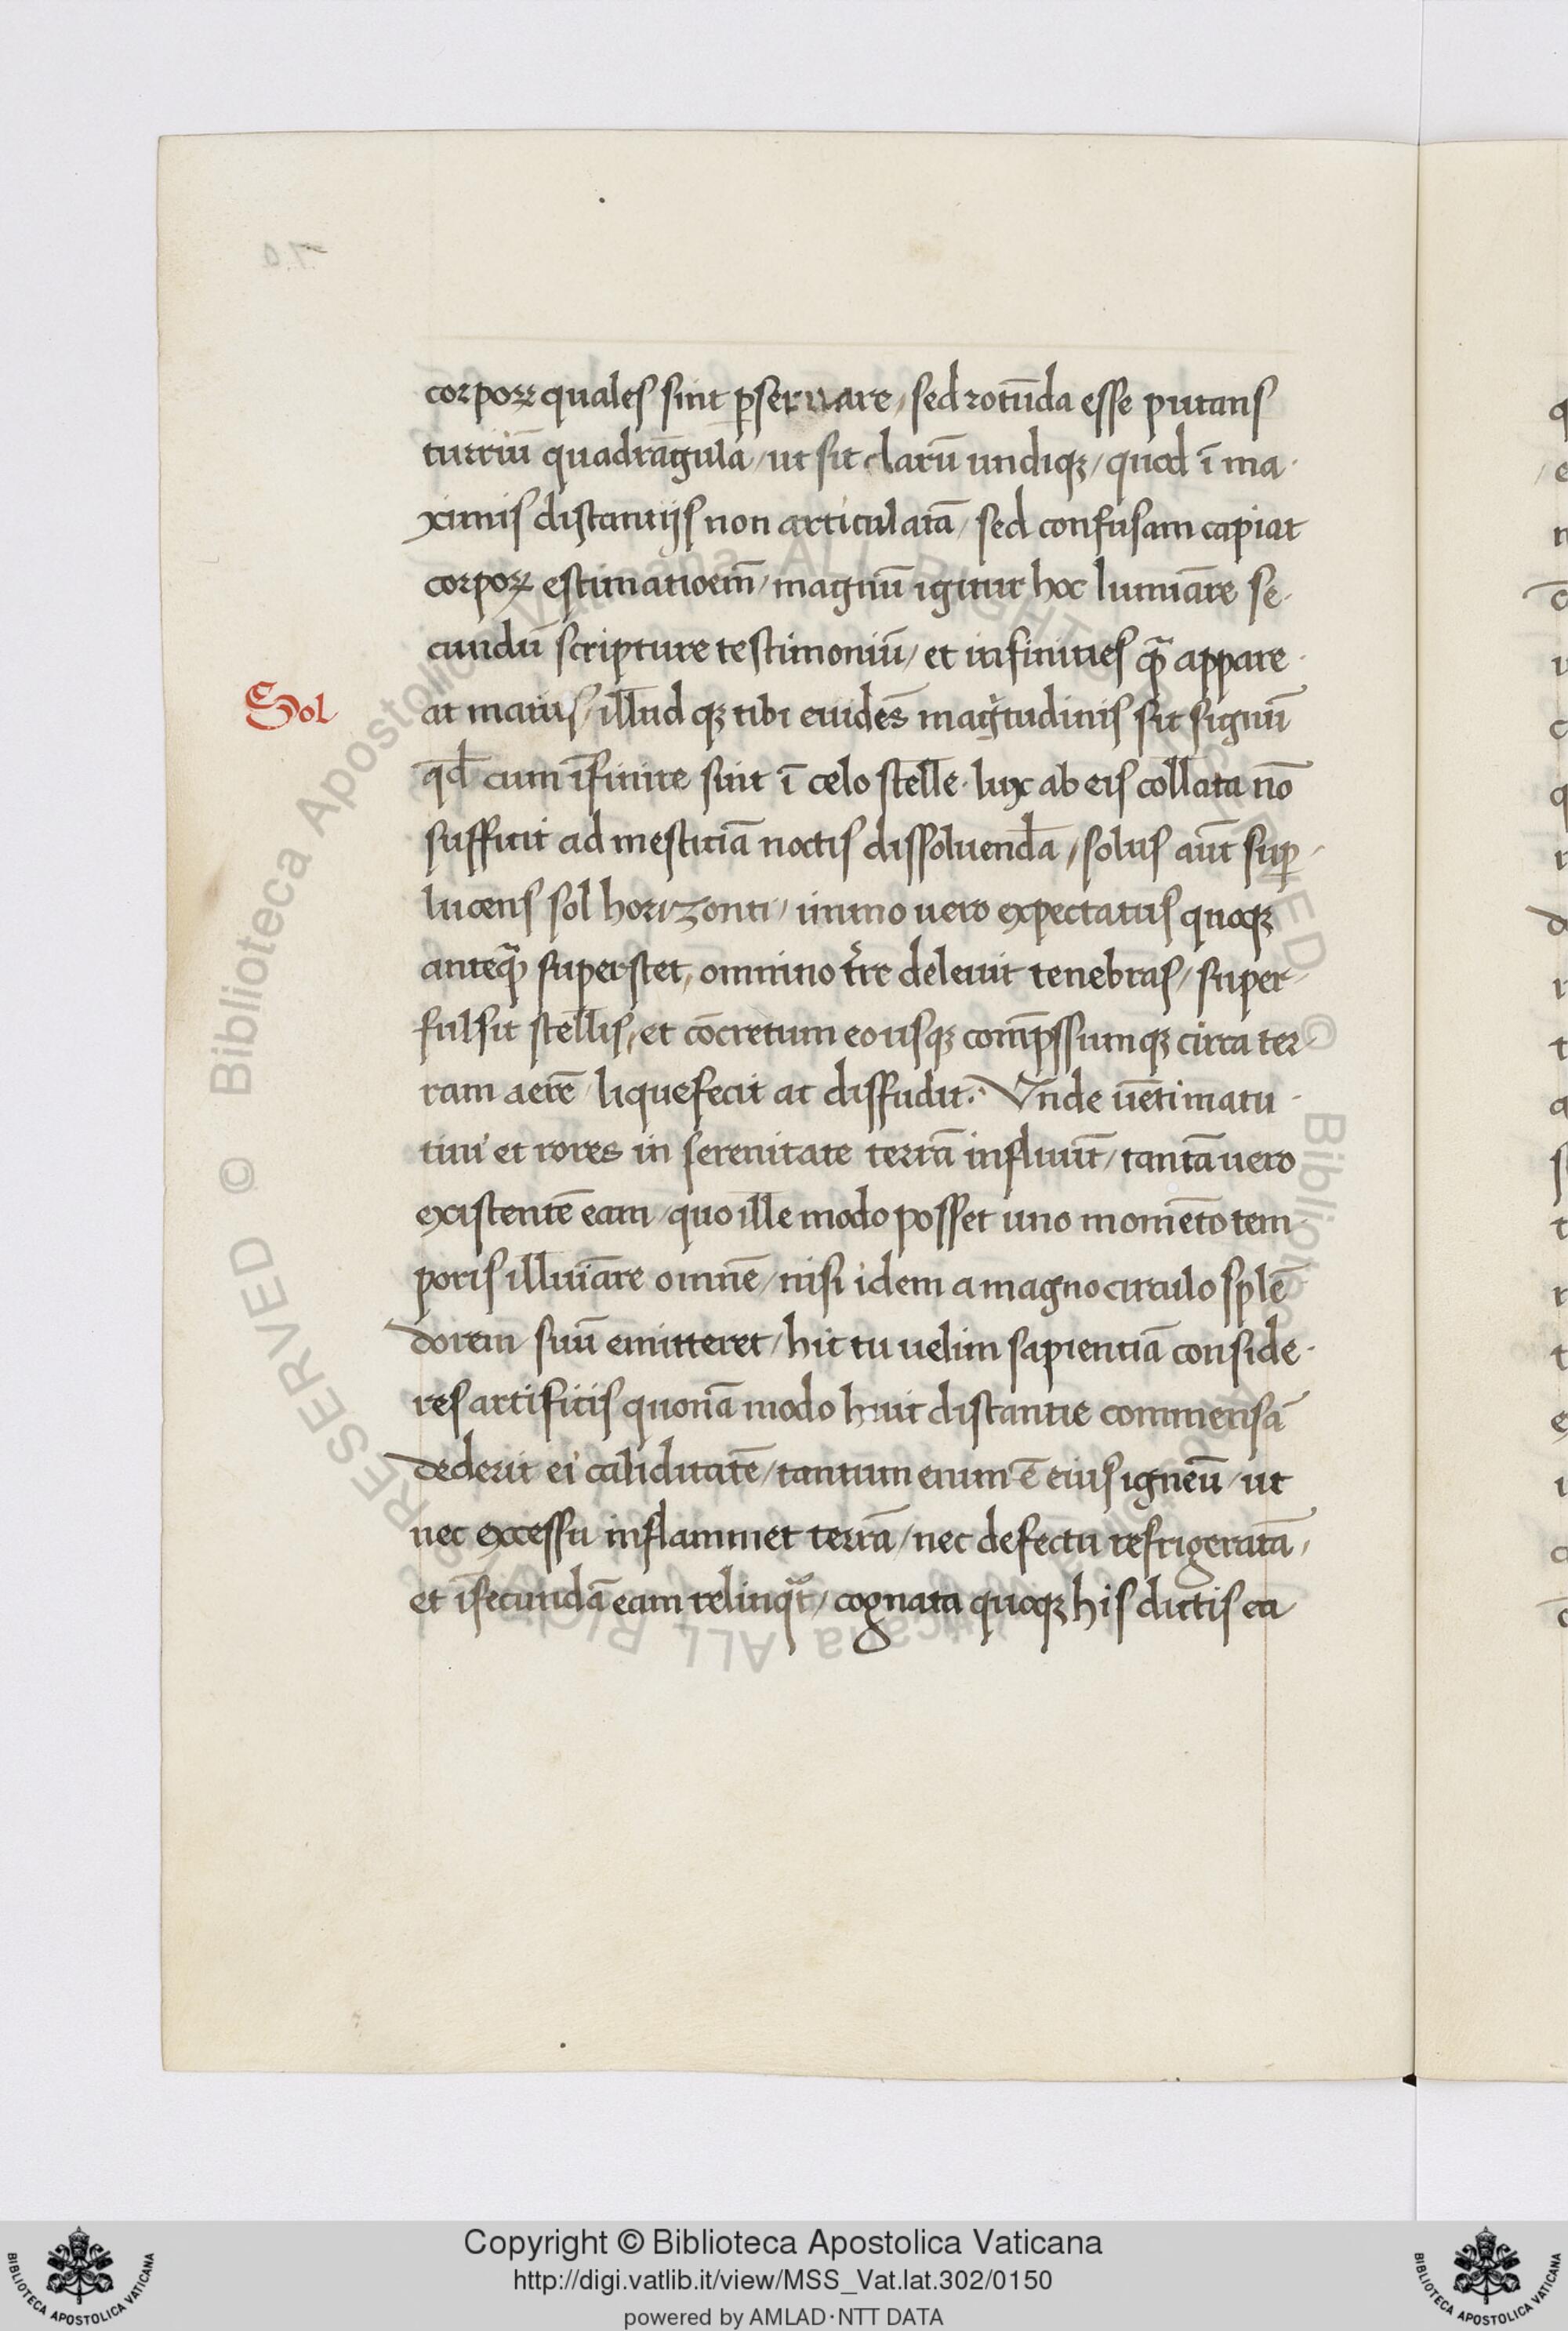 corpoꝝ quales sint p̱seruare / sed rotūda esse putans
turriū quadrāgula / ut sit clarū undiqꝫ / quod ī ma-
ximis distantijs non articulatā / sed confusam capiat
corpoꝝ estimatioem̄ / magnū igitur hoc lumiāre se-
cundū scripture testimoniū / et infinities qꝫ̄ appare-
Sol
at maius / illud qꝫ tibi euidēs mag̊tudinis sit signū
qd̄ cum īfinite sint ī celo stelle · lux ab eis collata nō
sufficit ad mestitiā noctis dissoluendā / solus aūt suꝑ
lucens sol horizonti / immo uero expectatus quoqꝫ
anteq̄ꝫ superstet, omnino tr̄e deleuit tenebras / super-
fulsit stellis, et cōcretum eousqꝫ comp̄ssumqꝫ circa ter-
ram aerē liquefecit ac diffudit. Vnde uēti matu-
tini et rores in serenitate terrā influūt / tantā uero
existentē eam / quo ille modo posset uno momēto tem-
poris illuīare omnē / nisi idem a magno circulo splē
dorem suū emitteret / hic tu uelim sapientiā conside-
res artificis quonā modo huic distantie commensā
dederit ei caliditatē / tantum enim ē eius igneū / ut
nec excessu inflammet terrā / nec defectu refrigeratā /
et īfecundā eam relinqᷓt / cognata quoqꝫ his dictis ea
Copyright © Biblioteca Apostolica Vaticana
http://digi.vatlib.it/view/MSS_Vat.lat.302/0150
powered by AMLAD·NTT DATA